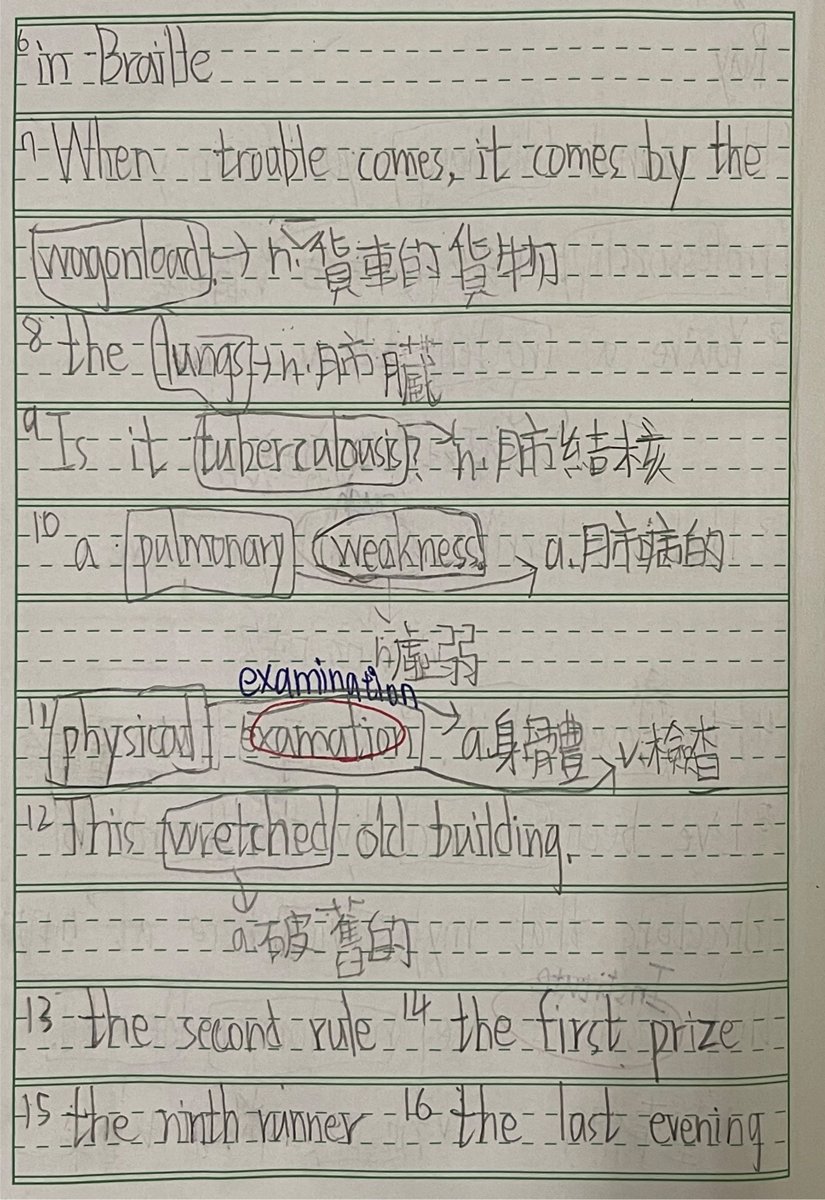 6 in Braille
7 When trouble comes, it comes by the
wagonload. → n. 貨車的貨物
8 the lungs → n. 肺臟
9 Is it tubercalousis? → n. 肺結核
10 a pulmonary weakness. → a. 肺病的
n. 虛弱
examination
11 physical examation a. 身體 v. 檢查
12 This wretched old building.
a. 破舊的
13 the second rule 14 the first prize
15 the ninth runner 16 the last evening